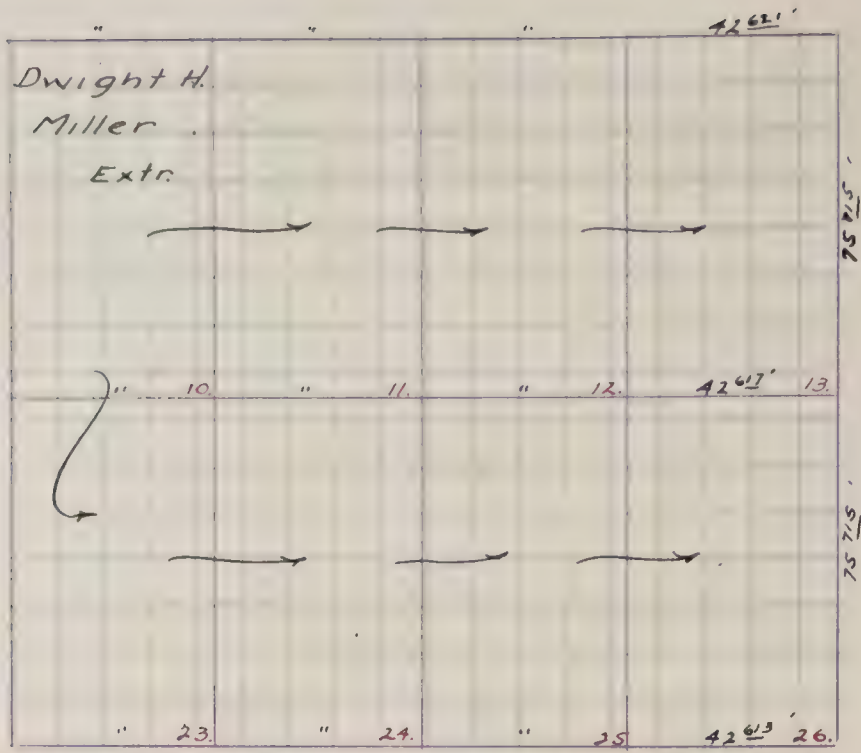 " " " 42 621'
Dwight H.
Miller
Extr.
75 715'
" 10. " 11. " 12. 42 617' 13.
75 715'
" 23. " 24. " 25 42 613' 26.